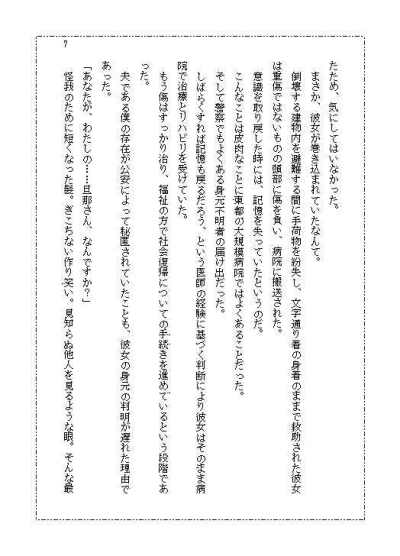 たため、気にしてはいなかった。
まさか、彼女が巻き込まれていたなんて。
倒壊する建物内を避難する間に手荷物を紛失し、文字通り着の身着のままで救助された彼女
は重傷ではないものの頭部に傷を負い、病院に搬送された。
意識を取り戻した時には、記憶を失っていたというのだ。
こんなことは皮肉なことに東都の大規模病院ではよくあることだった。
そして警察でもよくある身元不明者の届け出だった。
しばらくすれば記憶も戻るだろう、という医師の経験に基づく判断により彼女はそのまま病
院で治療とリハビリを受けていた。
もう傷はすっかり治り、福祉の方で社会復帰についての手続きを進めているという段階であ
った。
夫である僕の存在が公安によって秘匿されていたことも、彼女の身元の判明が遅れた理由で
あった。
「あなたが、わたしの……旦那さん、なんですか?」
怪我のために短くなった髪。ぎこちない作り笑い。見知らぬ他人を見るような眼。そんな最
7